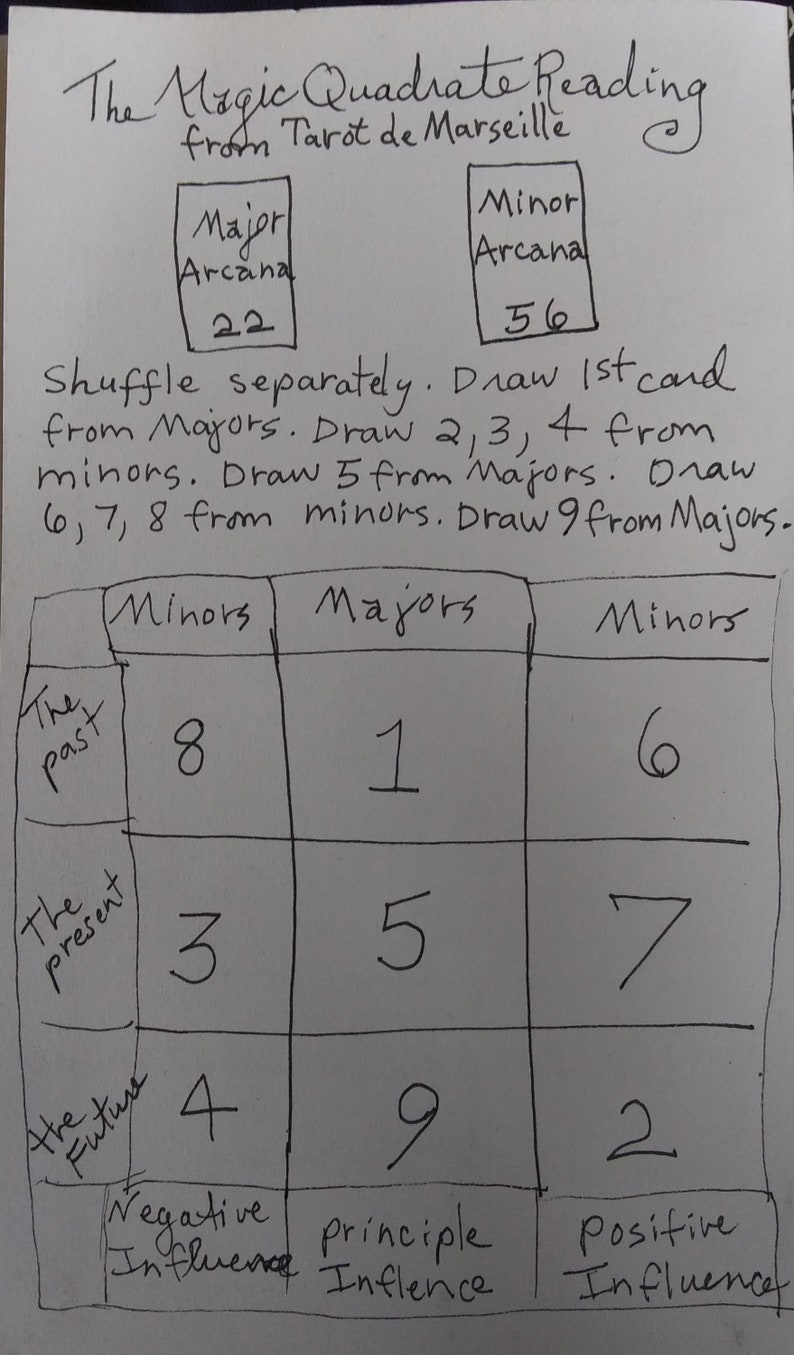 The Magic Quadrate Reading
from Tarot de Marseille
Major Arcana 22
Minor Arcana 56
Shuffle separately. Draw 1st card
from Majors. Draw 2, 3, 4 from
minors. Draw 5 from Majors. Draw
6, 7, 8 from minors. Draw 9 from Majors.
Minors Majors Minors
The past 8 1 6
The present 3 5 7
the Future 4 9 2
Negative Influence principle Inflence positive Influence